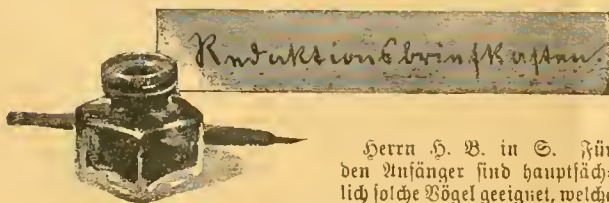 Redaktionsbriefkasten.
Herrn H. B. in S. Für
den Anfänger sind hauptsäch-
lich solche Vögel geeignet, welche